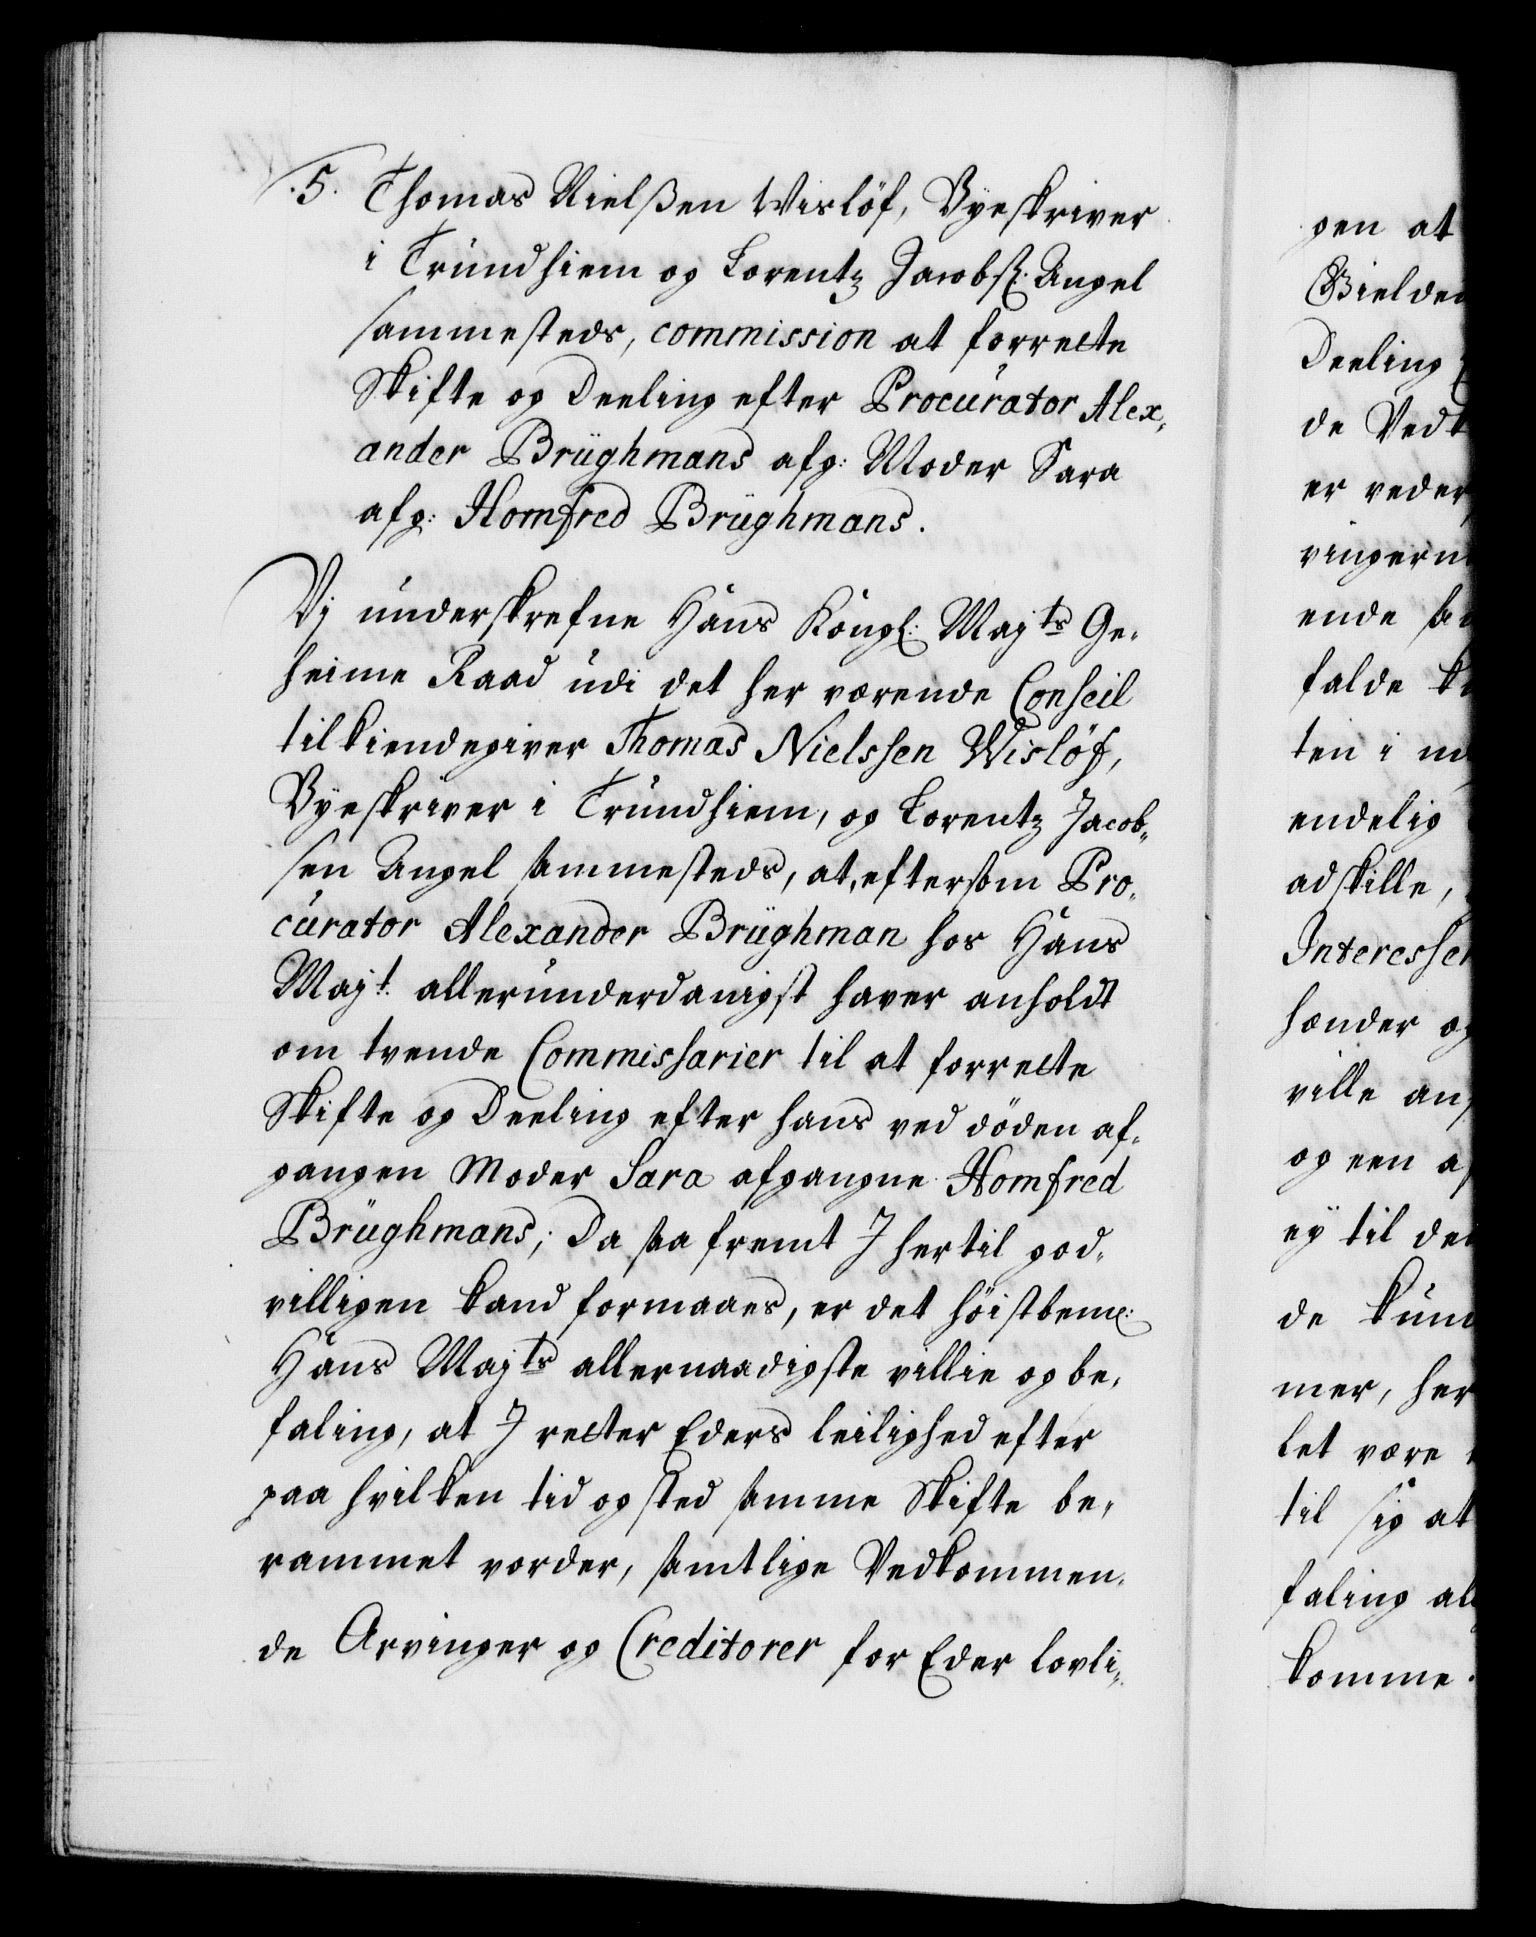 .5. Thomas Nielßen Wisløf, Byeskriver
i Trundhiem og Lorentz Jacobs: Angel
sammesteds, commission at forrette
Skifte og Deeling efter Procurator Alex-
ander Brüghmans afg: Moder Sara
afg: Homfred Brüghmans.
Vj underskrefne Hans Kongl: Majts Ge-
heime Raad udi det her værende Conseil
tilkiendegiver Thomas Nielssen Wisløf,
Byeskriver i Trundhiem, og Lorentz Jacob-
sen Angel sammesteds, at, eftersom Pro-
curator Alexander Brüghman hos Hans
Majt. allerunderdanigst haver anholdt
om tvende Commissarier til at forrette
Skifte og Deeling efter hans ved døden af-
gangen Moder Sara afgangne Homfred
Brüghmans; Da saa fremt J hertil god-
villigen kand formaaes, er det høistbemt:
Hans Majts allernaadigste villie og be-
faling, at J retter Eders leilighed efter
paa hvilken tid og sted samme Skifte be-
rammet vorder, samtlige Vedkommen-
de Arvinger og Creditorer for Eder lovli-
gen at
Gielden
Deeling
de Vedk
er veder
vingern
ende sa
falde
ten i
endelig
adskille,
Interesse
hænder og
ville
og een
ey til det
de kund
mer, her
let være
til sig at
faling
komme.